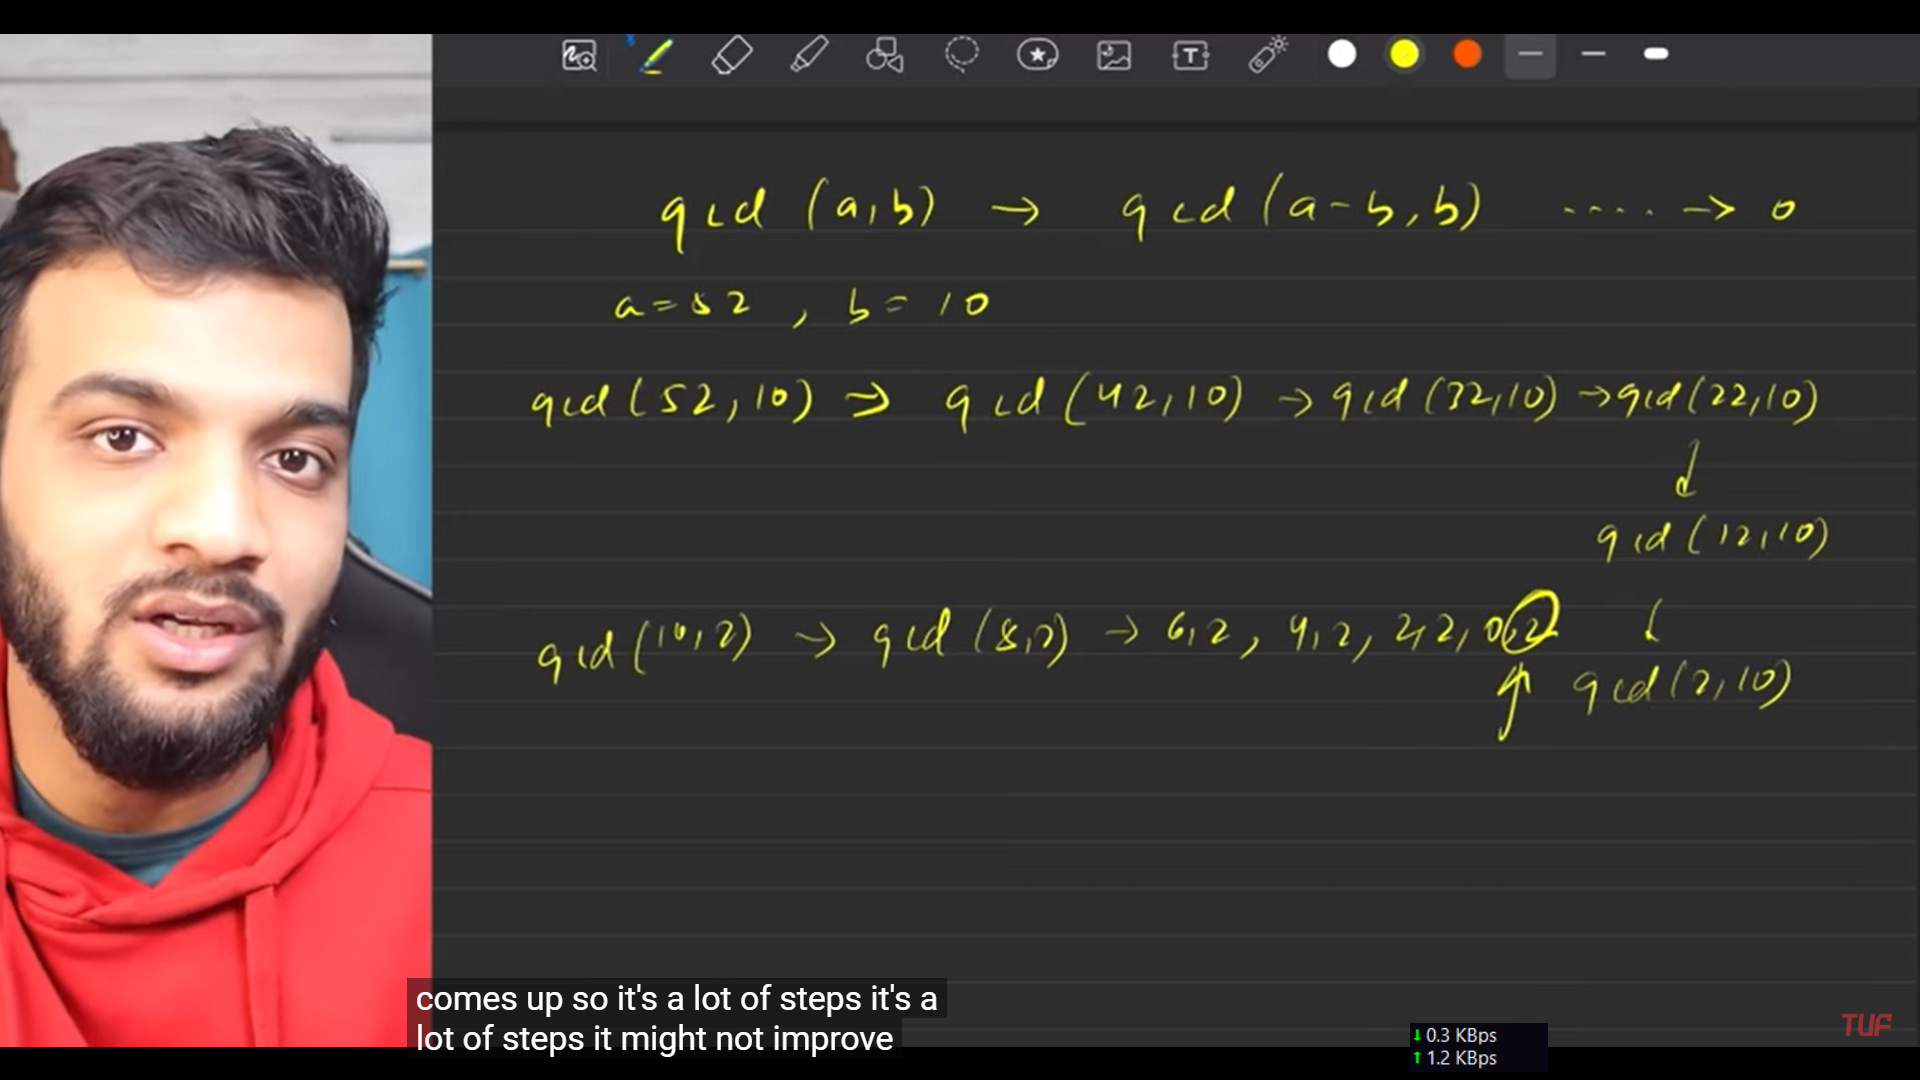 T
gcd (a,b) → gcd (a-b,b) ..... → 0
a=52 , b= 10
gcd (52,10) → gcd (42,10) → gcd (32,10) → gcd (22,10)
↓
gcd (12,10)
gcd (10,2) → gcd (8,2) → 6,2, 4,2, 2,2, 0,2
↑ gcd (2,10)
comes up so it's a lot of steps it's a
lot of steps it might not improve
TUF
↓ 0.3 KBps
↑ 1.2 KBps